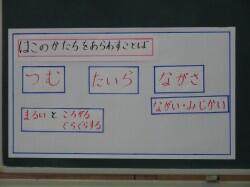 はこのかたちをあらわすことば
つむ たいら ながさ
ながい・みじかい
まるい と ころがる
ぐらぐらする